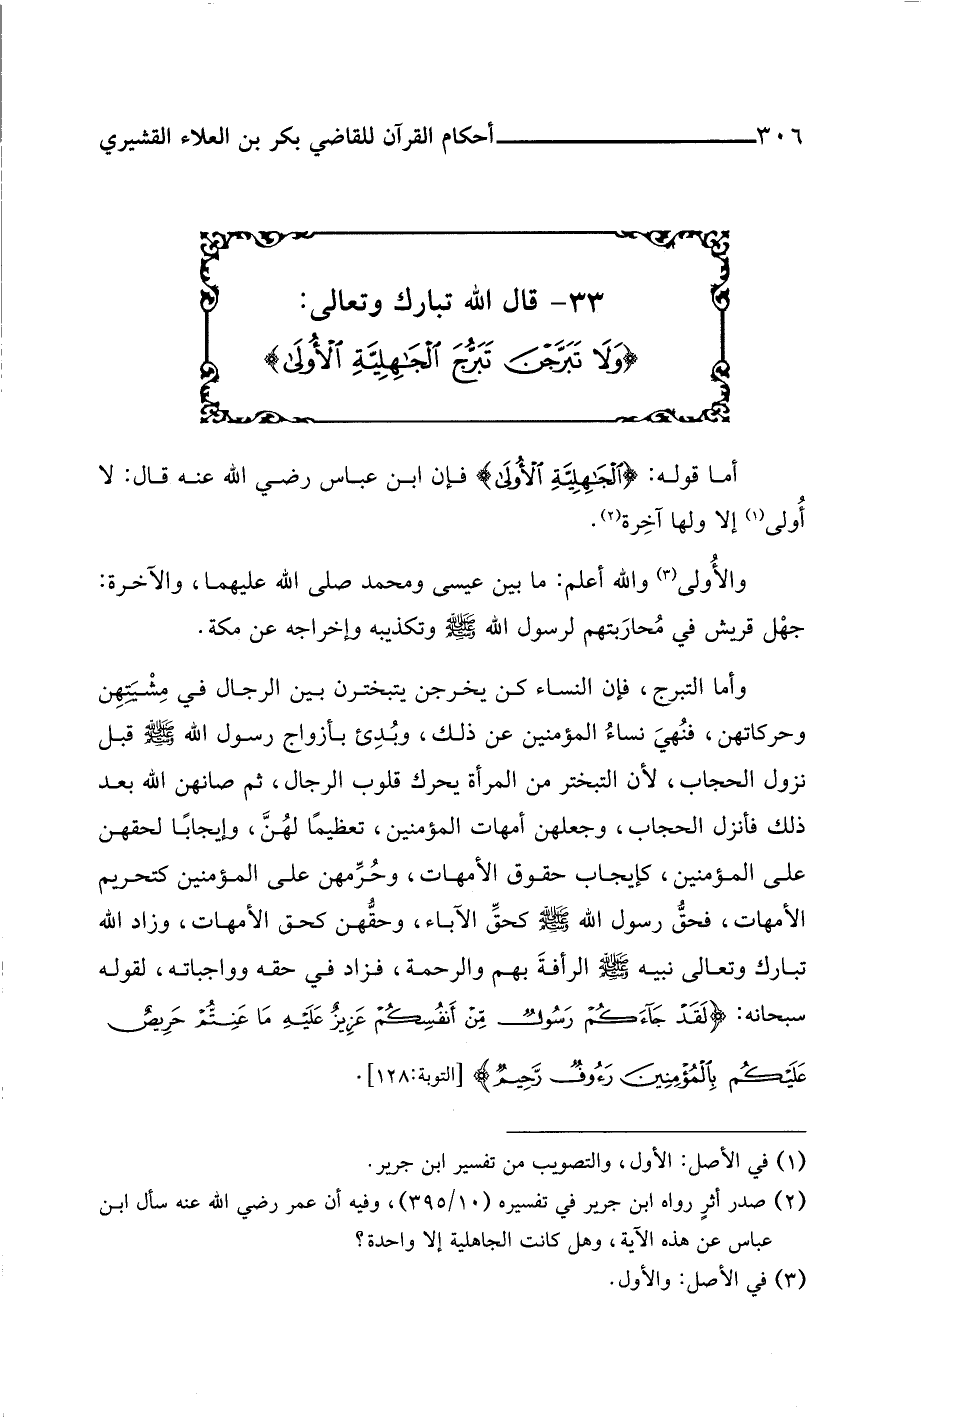 ٣٠٦ أحكام القرآن للقاضي بكر بن العلاء القشيري
٣٣- قال الله تبارك وتعالى:
﴿وَلَا تَبَرَّجْنَ تَبَرُّجَ ٱلْجَٰهِلِيَّةِ ٱلْأُولَىٰ﴾
أما قوله: ﴿ٱلْجَٰهِلِيَّةِ ٱلْأُولَىٰ﴾ فإن ابن عباس رضي الله عنه قال: لا
أُولى(١) إلا ولها آخِرة(٢).
والأُولى(٣) والله أعلم: ما بين عيسى ومحمد صلى الله عليهما، والآخرة:
جهْل قريش في مُحارَبتهم لرسول الله ﷺ وتكذيبه وإخراجه عن مكة.
وأما التبرج، فإن النساء كن يخرجن يتبخترن بين الرجال في مِشْيَتِهن
وحركاتهن، فنُهيَ نساءُ المؤمنين عن ذلك، وبُدِئ بأزواج رسول الله ﷺ قبل
نزول الحجاب، لأن التبختر من المرأة يحرك قلوب الرجال، ثم صانهن الله بعد
ذلك فأنزل الحجاب، وجعلهن أمهات المؤمنين، تعظيمًا لهُنَّ، وإيجابًا لحقهن
على المؤمنين، كإيجاب حقوق الأمهات، وحُرِّمهن على المؤمنين كتحريم
الأمهات، فحقُّ رسول الله ﷺ كحقِّ الآباء، وحقُّهن كحق الأمهات، وزاد الله
تبارك وتعالى نبيه ﷺ الرأفةَ بهم والرحمة، فزاد في حقه وواجباته، لقوله
سبحانه: ﴿لَقَدْ جَآءَكُمْ رَسُولٌ مِّنْ أَنفُسِكُمْ عَزِيزٌ عَلَيْهِ مَا عَنِتُّمْ حَرِيصٌ
عَلَيْكُم بِٱلْمُؤْمِنِينَ رَءُوفٌ رَّحِيمٌ﴾ [التوبة:١٢٨].
(١) في الأصل: الأول، والتصويب من تفسير ابن جرير.
(٢) صدر أثرٍ رواه ابن جرير في تفسيره (٣٩٥/١٠)، وفيه أن عمر رضي الله عنه سأل ابن
عباس عن هذه الآية، وهل كانت الجاهلية إلا واحدة؟
(٣) في الأصل: والأول.